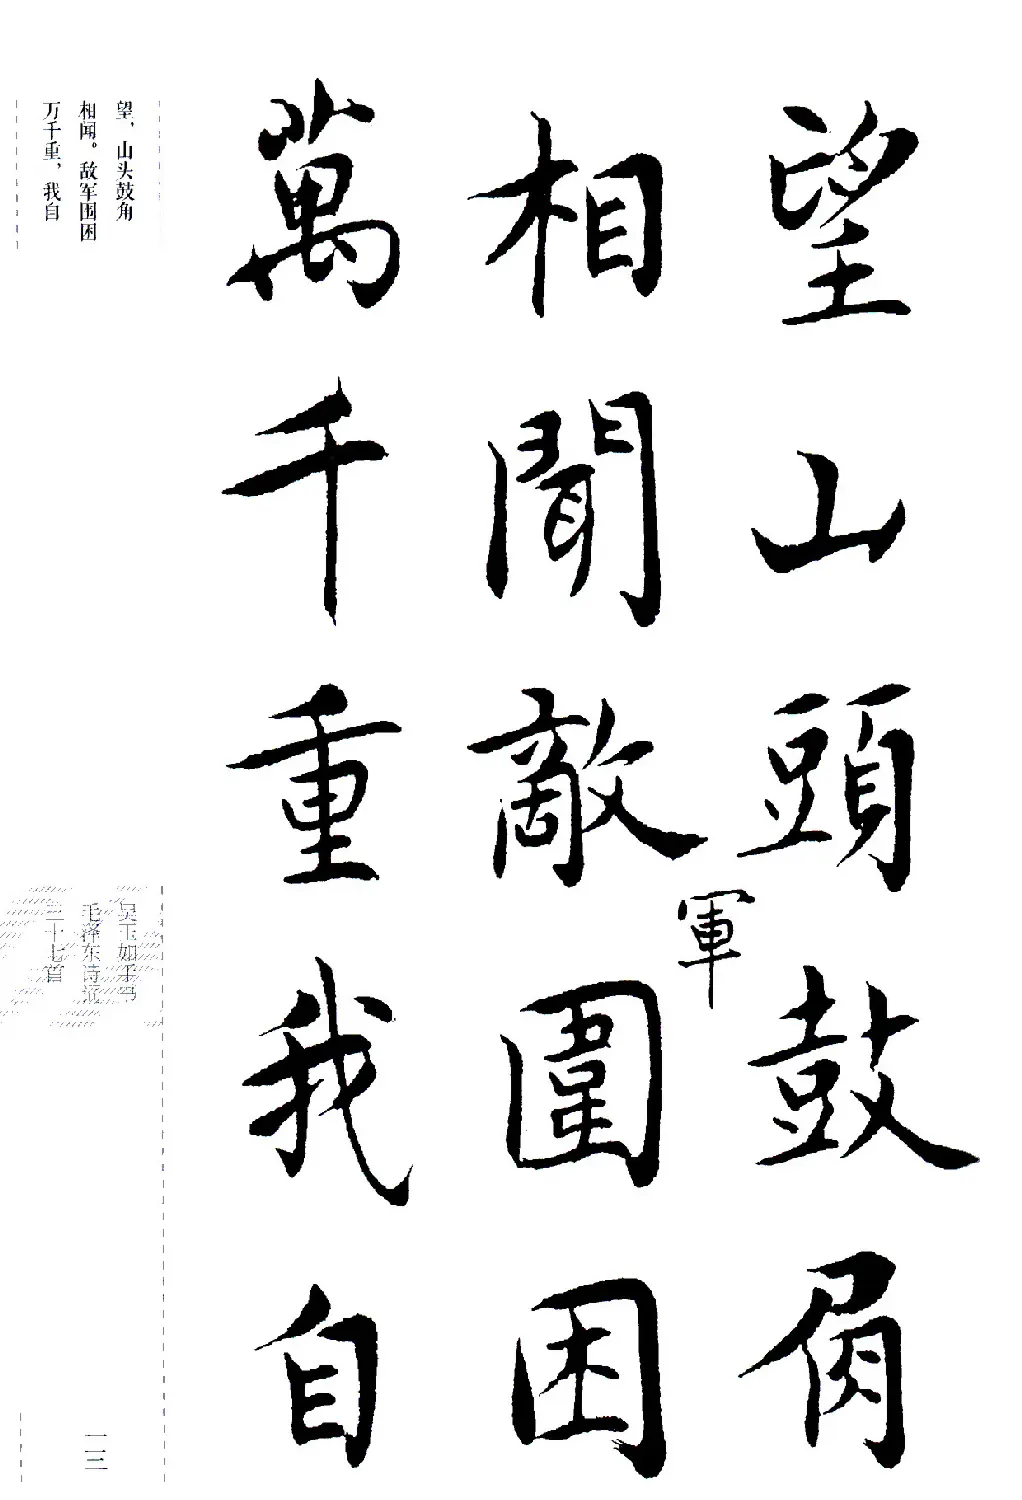 望山頭鼓角
相聞敵軍圍困
萬千重我自
望，山头鼓角
相闻。敌军围困
万千重，我自
吴玉如手写
毛泽东诗词
三十七首
一一三